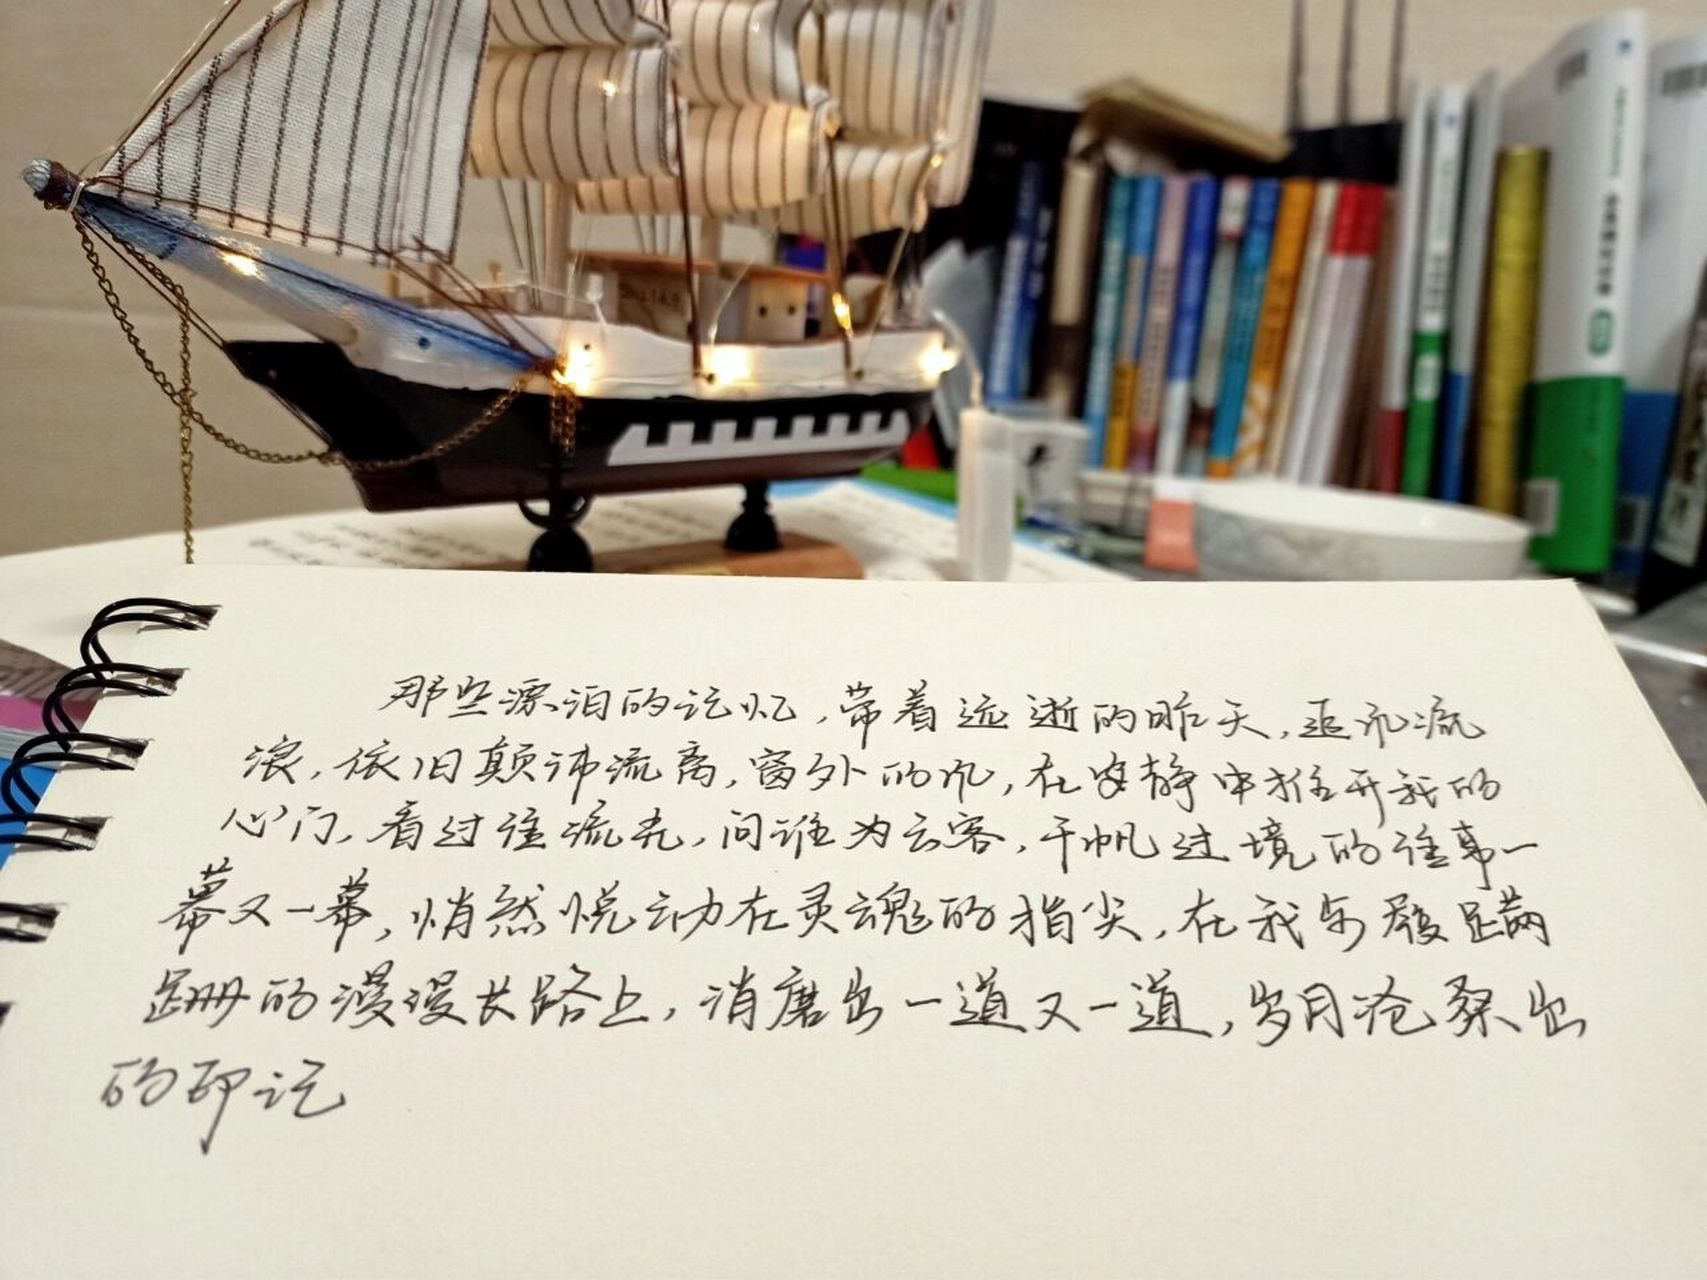 那些漂泊的记忆，带着远逝的昨天，追风流
浪，依旧颠沛流离，窗外的风，在安静中推开我的
心门，看过往流光，问谁为云客，千帆过境的往事一
幕又一幕，悄然悦动在灵魂的指尖，在我步履蹒
跚的漫漫长路上，消磨出一道又一道，岁月沧桑出
的印记